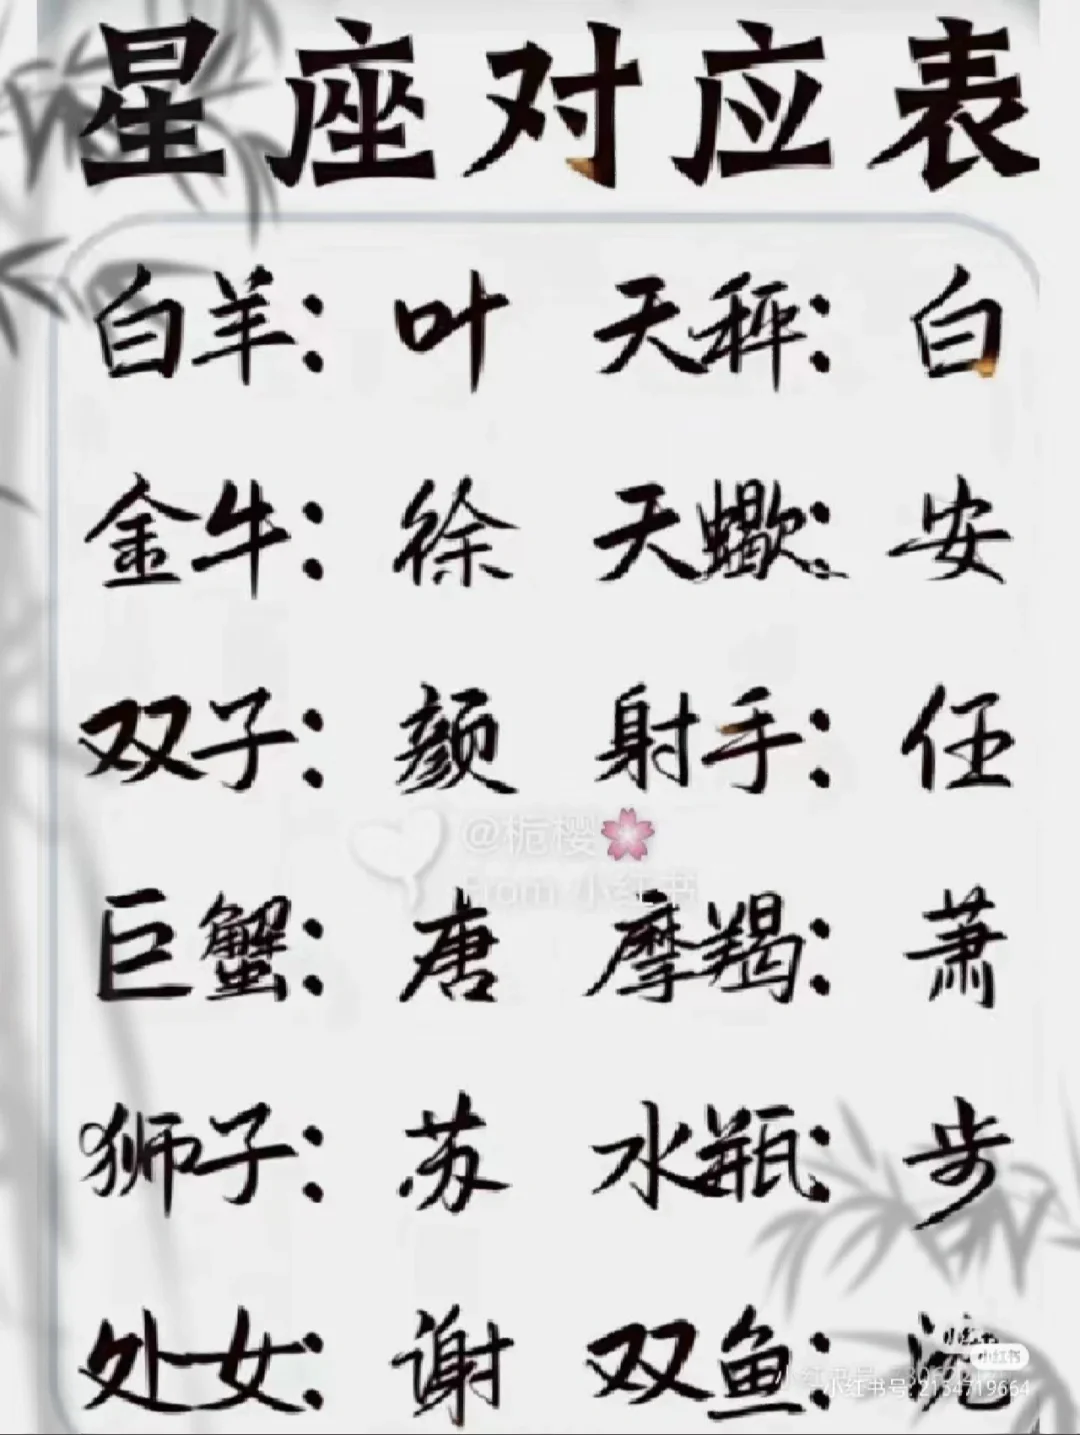 星座对应表
白羊：叶 天秤：白
金牛：徐 天蝎：安
双子：颜 射手：任
@栀樱🌸
From 小红书
巨蟹：唐 摩羯：萧
狮子：苏 水瓶：步
处女：谢 双鱼：
小红书
小红书号: 2154719664